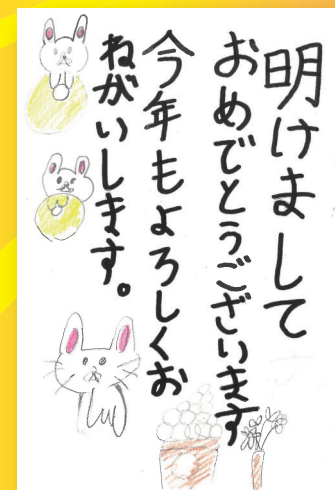 明けまして
おめでとうございます
今年もよろしくお
ねがいします。